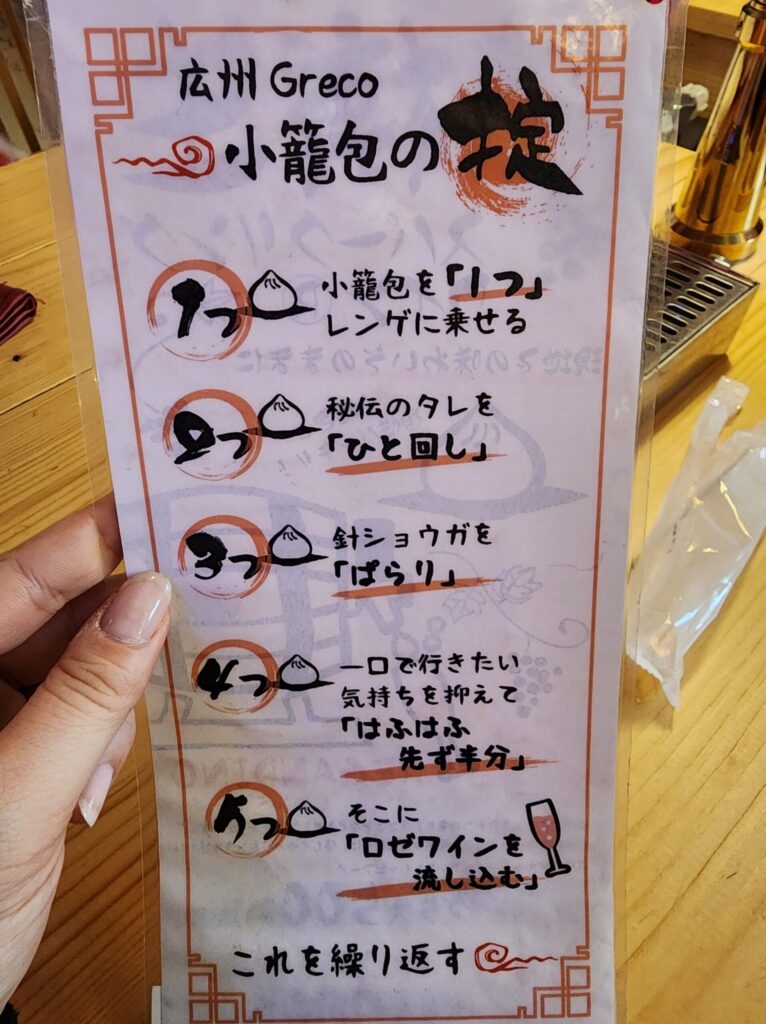 広州Greco
小籠包の掟
1つ
小籠包を「1つ」
レンゲに乗せる
2つ
秘伝のタレを
「ひと回し」
3つ
針ショウガを
「ぱらり」
4つ
一口で行きたい
気持ちを抑えて
「はふはふ
先ず半分」
5つ
そこに
「ロゼワインを
流し込む」
これを繰り返す